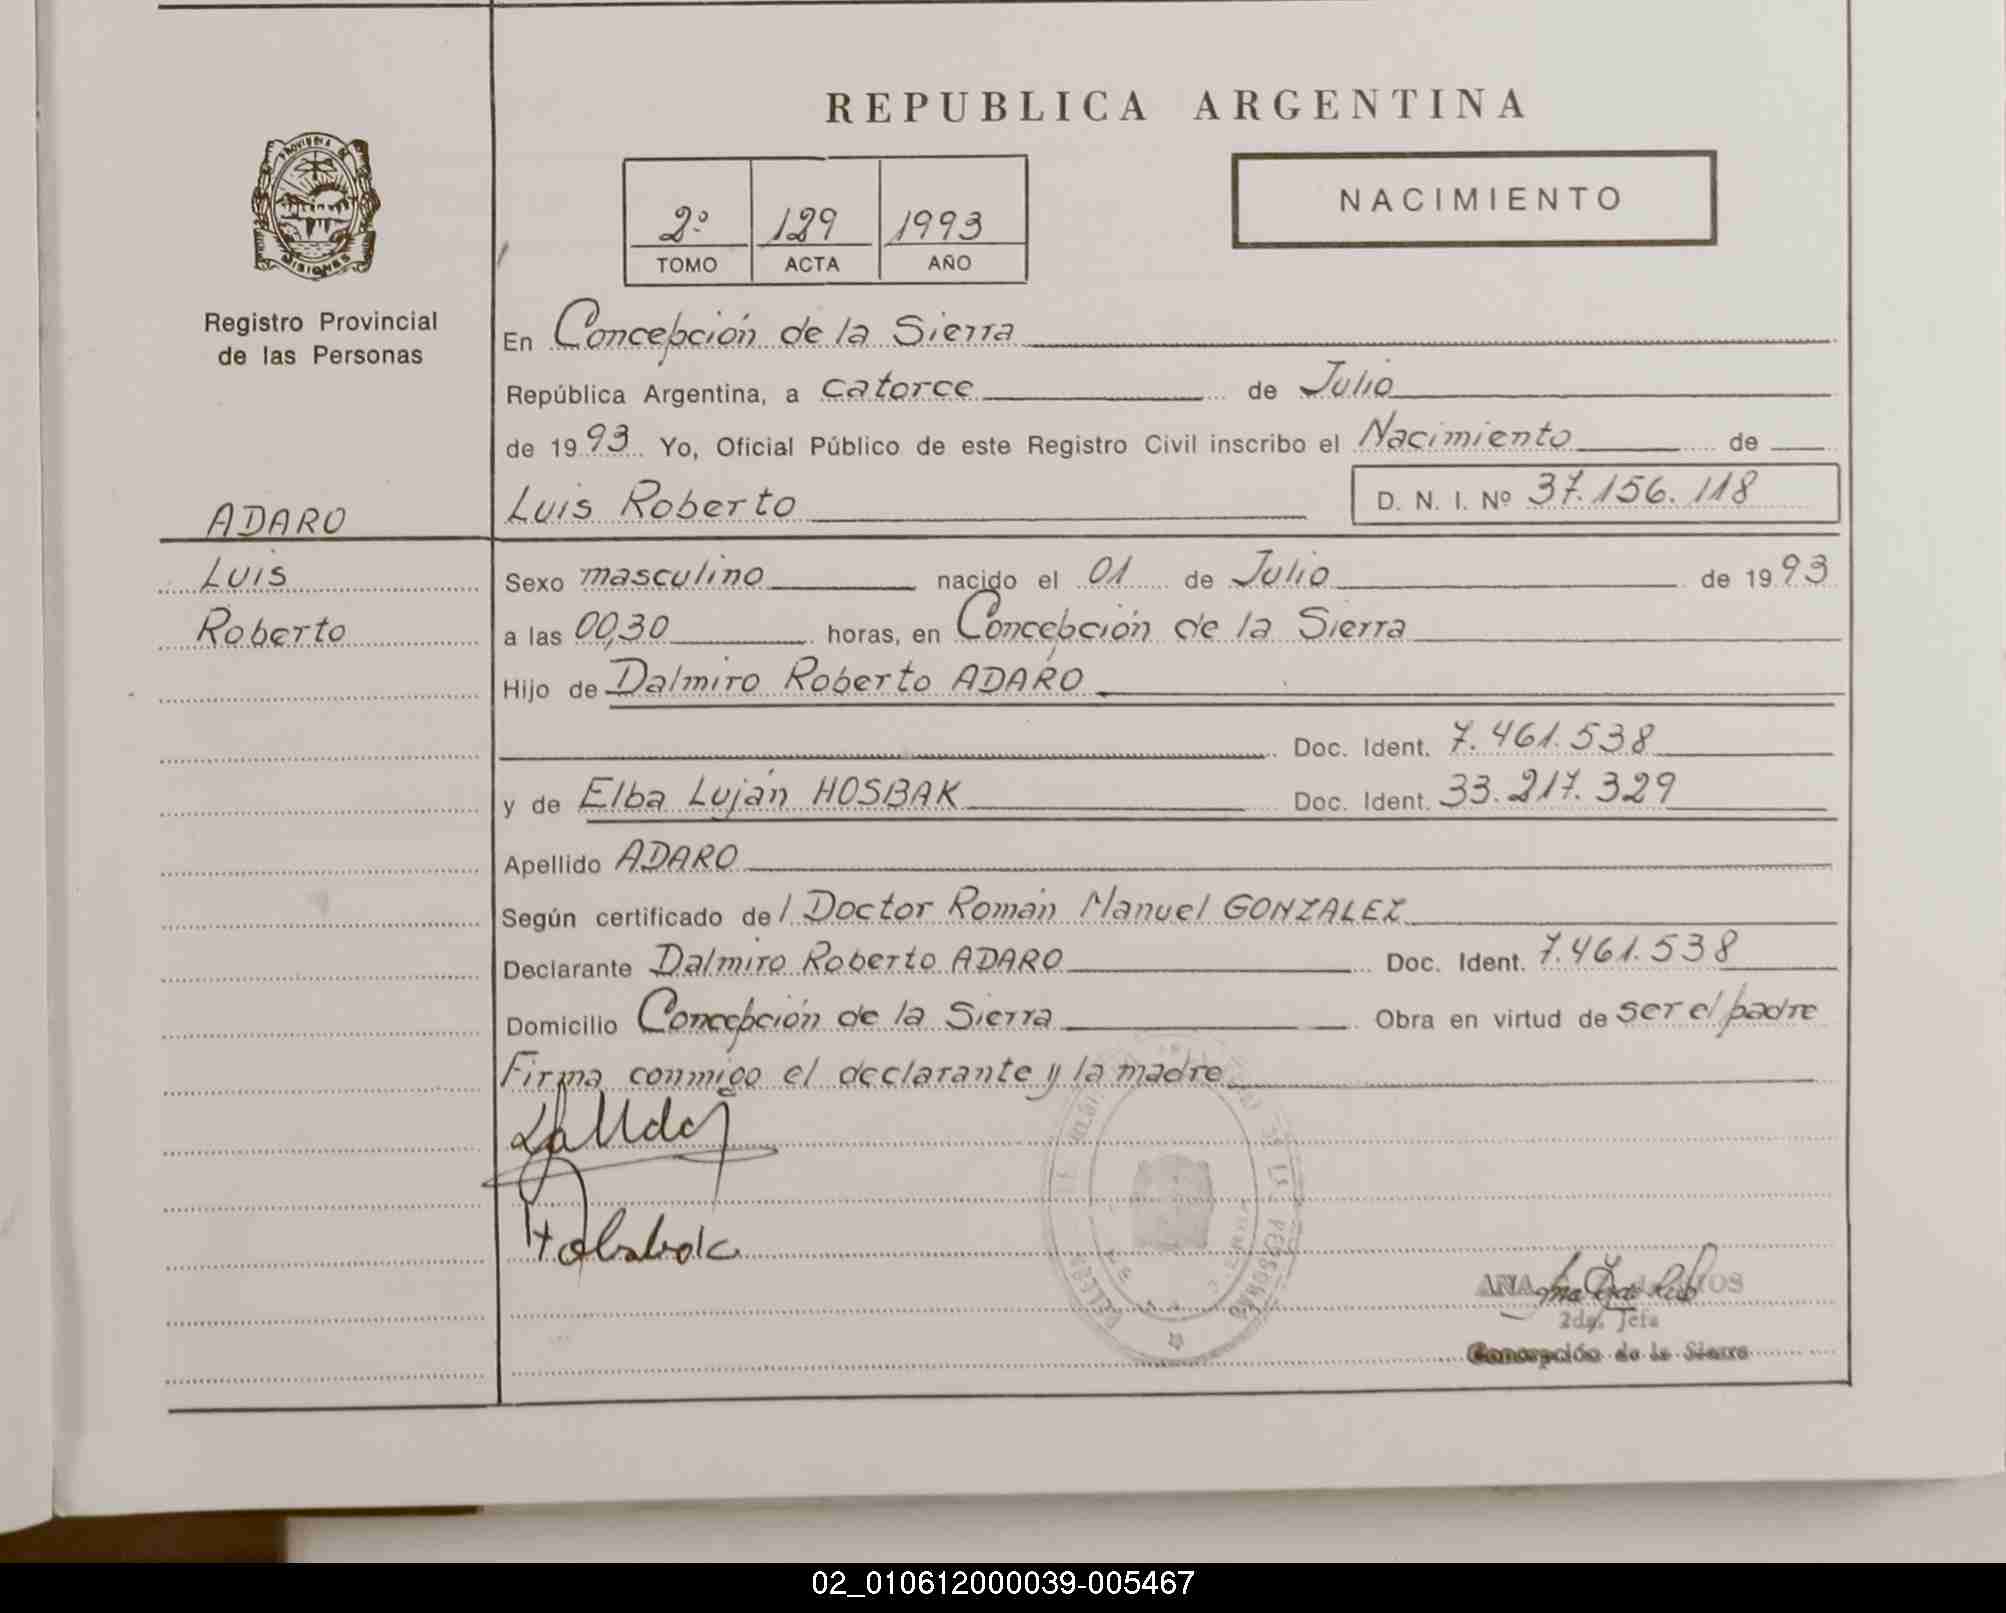 REPUBLICA ARGENTINA
PROVINCIA DE
MISIONES
2º 129 1993
TOMO ACTA AÑO
NACIMIENTO
Registro Provincial
de las Personas
En Concepción de la Sierra
República Argentina, a catorce de Julio
de 1993 Yo, Oficial Público de este Registro Civil inscribo el Nacimiento de
ADARO
Luis Roberto D. N. I. Nº 37.156.118
Luis
Sexo masculino nacido el 01 de Julio de 1993
Roberto
a las 00,30 horas, en Concepción de la Sierra
Hijo de Dalmiro Roberto ADARO
Doc. Ident. 7.461.538
y de Elba Luján HOSBAK Doc. Ident. 33.217.329
Apellido ADARO
Según certificado del Doctor Román Manuel GONZALEZ
Declarante Dalmiro Roberto ADARO Doc. Ident. 7.461.538
Domicilio Concepción de la Sierra Obra en virtud de ser el padre
Firma conmigo el declarante y la madre
ANA
2da. Jefa
Concepción de la Sierra
02_010612000039-005467